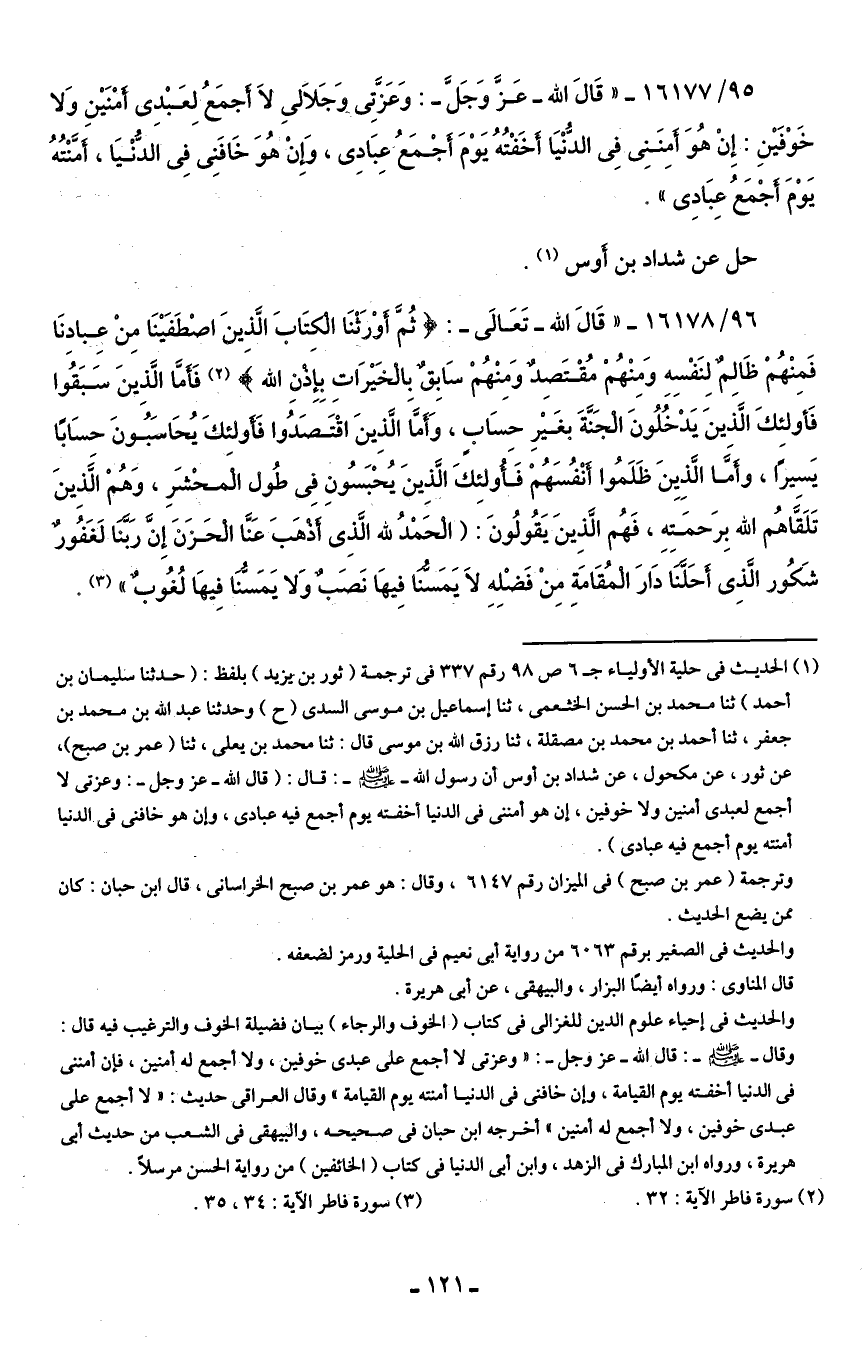 ١٦١٧٧/٩٥ ـ « قَالَ الله ـ عَـزَّ وَجَلَّ ـ : وَعَزَّتِى وَجَلَالِى لاَ أَجمَعُ لِعَـبْدِى أَمْنَيْنِ وَلَا
خَوْفَيْنِ : إِنْ هُوَ أَمِنَـنِى فِى الدُّنْيَا أَخَفْتُهُ يَوْمَ أَجْـمَعُ عِبَادِى ، وَإِنْ هُوَ خَافَنِى فِى الدُّنْـيَا ، أَمَّنْتُهُ
يَوْمَ أَجْمَعُ عِبَادِى » .
حل عن شداد بن أوس (١) .
١٦١٧٨/٩٦ ـ « قَالَ الله ـ تَعَـالَى ـ : ﴿ ثُمَّ أَوْرَثْنَا الْكِتَابَ الَّذِينَ اصْطَفَيْنَا مِنْ عِـبادِنَا
فَمِنْهُمْ ظَالِمٌ لِنَفْسِهِ وَمِنْهُمْ مُقْـتَصِدٌ وَمِنْهُمْ سَابِقٌ بِالْخَيْرَاتِ بِإِذْنِ الله ﴾ (٢) فَأَمَّا الَّذِينَ سَـبَقُوا
فَأُولئِكَ الَّذِينَ يَدْخُلُونَ الْجَنَّةَ بِغَيْرِ حِسَابٍ ، وَأَمَّا الَّذِينَ اقْتَـصَدُوا فَأُولئِكَ يُحَاسَبُـونَ حِسَابًا
يَسِيرًا ، وَأَمَّـا الَّذِينَ ظَلَمُوا أَنْفُسَهُمْ فَـأُولئِكَ الَّذِينَ يُحْبَسُونِ فِى طُولِ الْمَـحْشَرِ ، وَهُمْ الَّذِينَ
تَلَقَّاهُم الله بِرَحمَـتِهِ ، فَهُم الَّذِينَ يَقُولُونَ : ( الْحَمْدُ لله الَّذِى أَذْهَبَ عَنَّا الْحَـزَنَ إِنَّ رَبَّنَا لَغَفُورٌ
شَكُور الَّذِى أَحَلَّنَا دَارَ الْمُقَامَةِ مِنْ فَضْلِهِ لاَ يَمَسُّنَا فِيهَا نَصَبٌ وَلَا يَمَسُّنَا فِيهَا لُغُوبٌ » (٣) .
(١) الحديـث فى حلية الأوليـاء جـ ٦ ص ٩٨ رقم ٣٣٧ فى ترجمـة ( ثور بن يزيد ) بلفظ : ( حـدثنا سليمـان بن
أحمد ) ثنا مـحمد بن الحسن الخثـعمى ، ثنا إسماعيل بن مـوسى السدى ( ح ) وحدثنا عبد الله بن محـمد بن
جعفر ، ثنا أحمد بن محمد بن مصقلة ، ثنا رزق الله بن موسى قال : ثنا محمد بن يعلى ، ثنا ( عمر بن صبح)،
عن ثور ، عن مكحول ، عن شداد بن أوس أن رسول الله ـ ﷺ ـ : قـال : ( قال الله ـ عز وجل ـ : وعزتى لا
أجمع لعبدى أمنين ولا خوفين ، إن هو أمننى فى الدنيا أخفـته يوم أجمع فيه عبادى ، وإن هو خافنى فى الدنيا
أمنته يوم أجمع فيه عبادى ) .
وترجمة ( عمر بن صبح ) فى الميزان رقم ٦١٤٧ ، وقال : هو عمر بن صبح الخراسانى ، قال ابن حبان : كان
ممن يضع الحديث .
والحديث فى الصغير برقم ٦٠٦٣ من رواية أبى نعيم فى الحلية ورمز لضعفه .
قال المناوى : ورواه أيضًا البزار ، والبيهقى ، عن أبى هريرة .
والحديث فى إحياء علوم الدين للغزالى فى كتاب ( الخوف والرجاء ) بيـان فضيلة الخوف والترغيب فيه قال :
وقال ـ ﷺ ـ : قال الله ـ عز وجل ـ : « وعزتى لا أجمع على عبدى خوفين ، ولا أجمع له أمنين ، فإن أمننى
فى الدنيا أخفـته يوم القيامة ، وإن خافنى فى الدنيـا أمنته يوم القيامة » وقال العـراقى حديث : « لا أجمع على
عبـدى خوفين ، ولا أجمع له أمنين » أخـرجه ابن حبان فى صـحيحـه ، والبيهقى فى الشعب من حديث أبى
هريرة ، ورواه ابن المبارك فى الزهد ، وابن أبى الدنيا فى كتاب ( الخائفين ) من رواية الحسن مرسلاً .
(٢) سورة فاطر الآية : ٣٢ . (٣) سورة فاطر الآية : ٣٤ ، ٣٥ .
ـ ١٢١ ـ